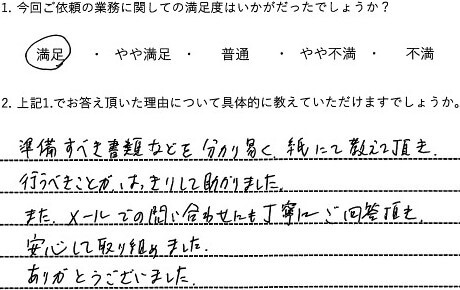 1. 今回ご依頼の業務に関しての満足度はいかがだったでしょうか？
満足 ・ やや満足 ・ 普通 ・ やや不満 ・ 不満
2. 上記1.でお答え頂いた理由について具体的に教えていただけますでしょうか。
準備すべき書類などを分かり易く、紙にて教えて頂き、
行うべきことが、はっきりして助かりました。
また、メールでの問い合わせにも丁寧にご回答頂き、
安心して取り組めました。
ありがとうございました。